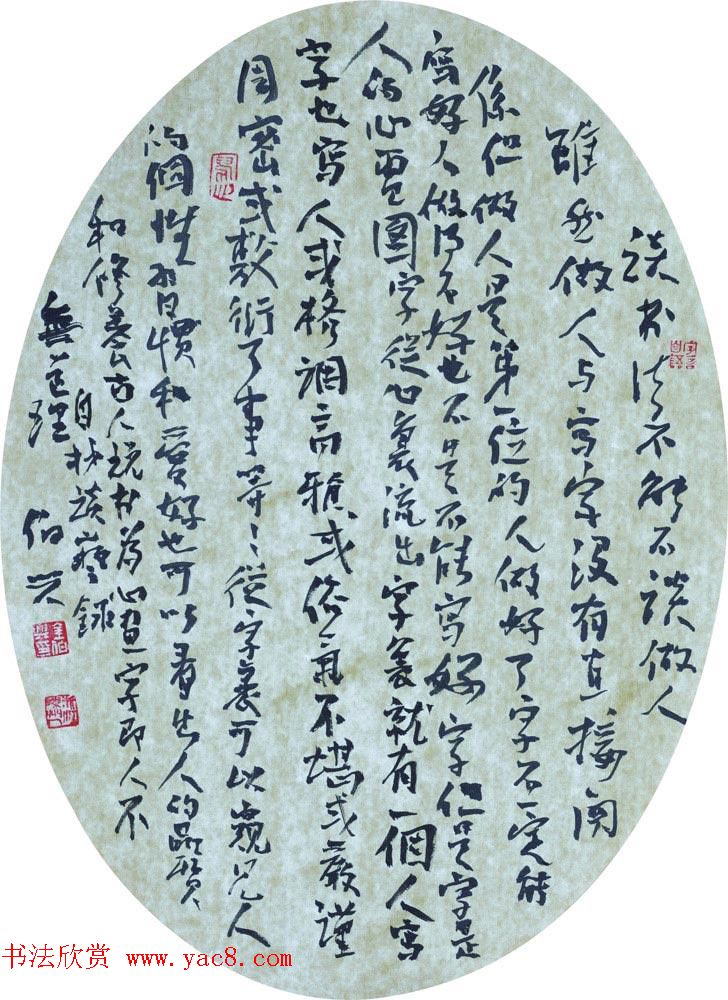 談书法不能不談做人
雖然做人与寫字没有直接関
係但做人是第一位的人做好了字不一定能
寫好人做得不好也不是不能寫好字但是字是
人的心里图字從心裏流出字裏就有一個人寫
字也寫人或格调高雅或俗氣不堪或嚴謹
周密或敷衍了事等等從字裏可以窺見人
的個性習慣和爱好也可以看出人的品質
和修養古人说书為心画字即人不
自抄談藝録
無道理 伯兴
书法欣赏 www.yac8.com